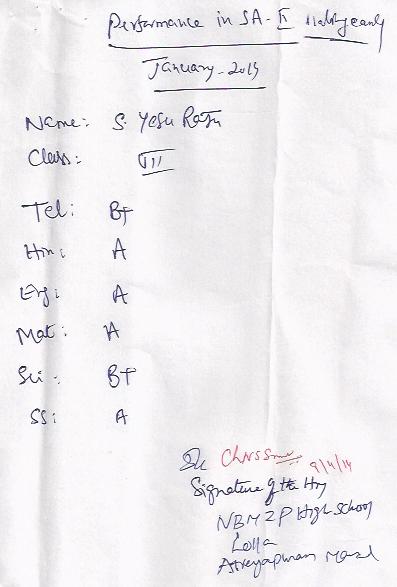 Performance in SA-II
January-2014
Name: S. Yesu Raju
Class: VII
Tel: B+
Hin: A
Eng: A
Mat: A
Sci: B+
SS: A
9/4/14
Signature of the Hm
NBM ZP High School
Lolla
Atreyapuram